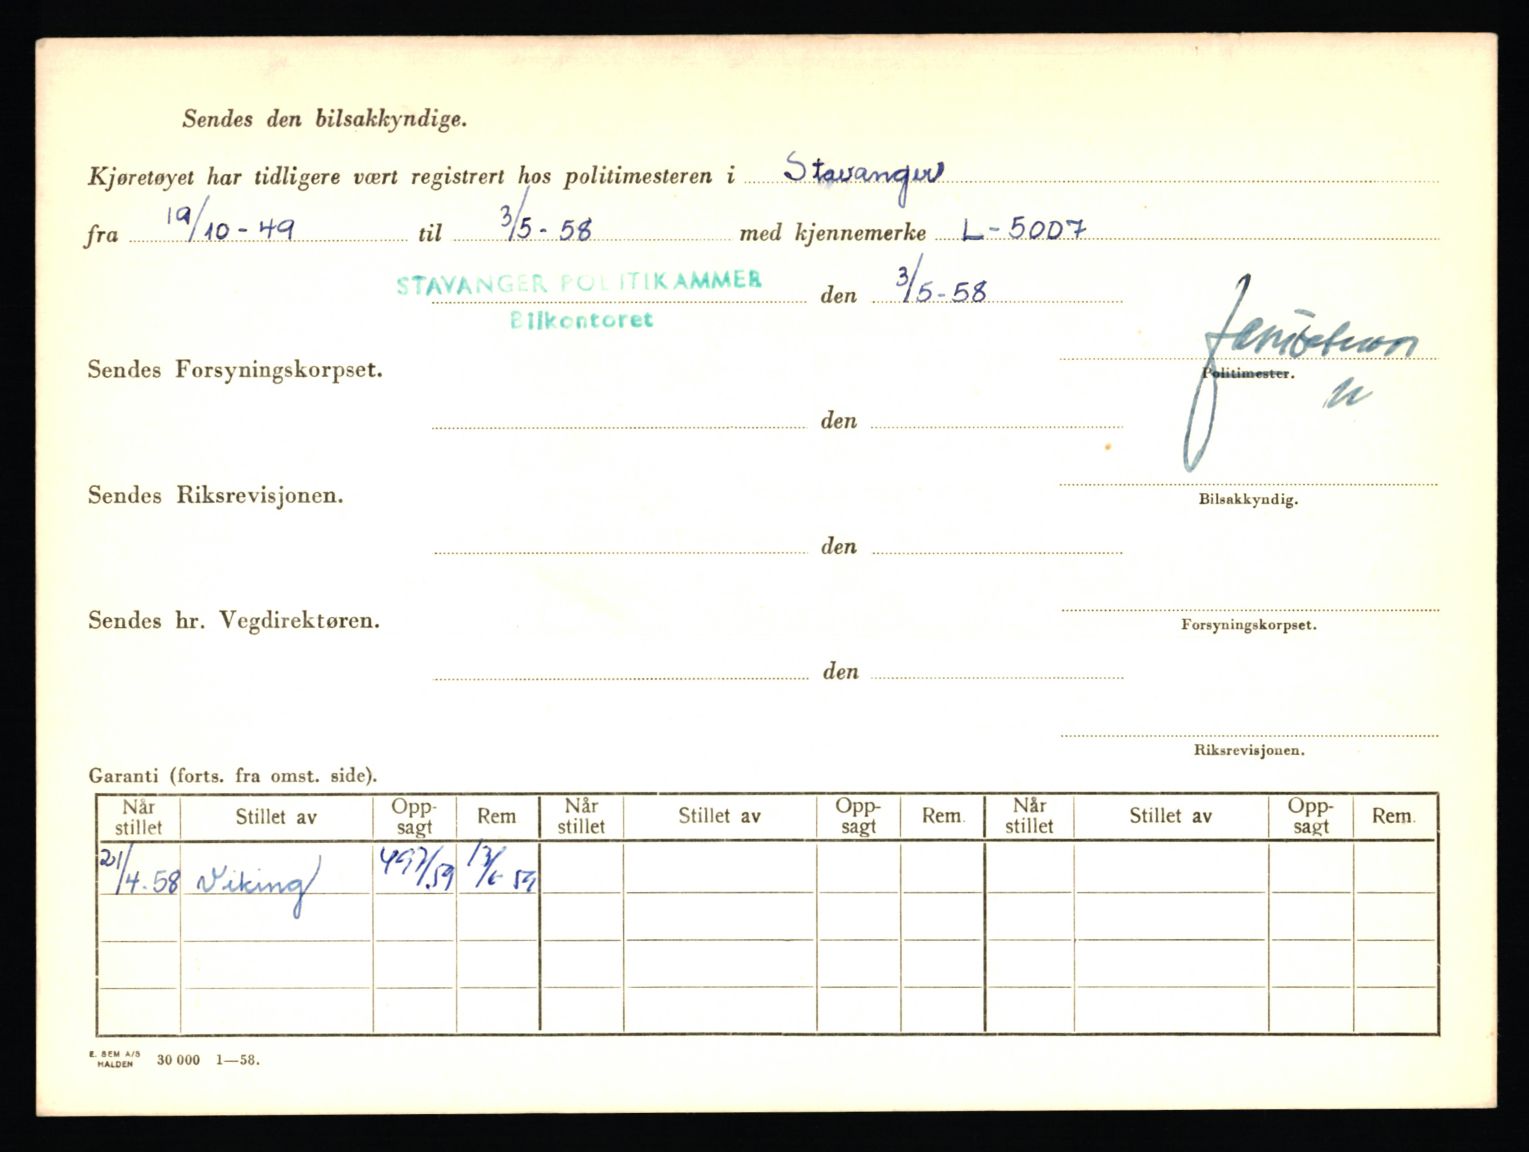 Sendes den bilsakkyndige.
Kjøretøyet har tidligere vært registrert hos politimesteren i Stavanger
fra 19/10-49 til 3/5-58 med kjennemerke L-5007
STAVANGER POLITIKAMMER den 3/5-58
Bilkontoret
Sendes Forsyningskorpset.
Politimester.
den
Sendes Riksrevisjonen.
Bilsakkyndig.
den
Sendes hr. Vegdirektøren.
Forsyningskorpset.
den
Riksrevisjonen.
Garanti (forts. fra omst. side).
Når stillet Stillet av Opp-sagt Rem Når stillet Stillet av Opp-sagt Rem. Når stillet Stillet av Opp-sagt Rem.
21/4-58 Viking
E. SEM A/S
HALDEN 30 000 1—58.